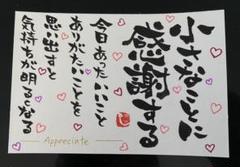 小さなことに
感謝する
今日あったいいこと
ありがたいことを
思い出すと
気持ちが明るくなる
Appreciate